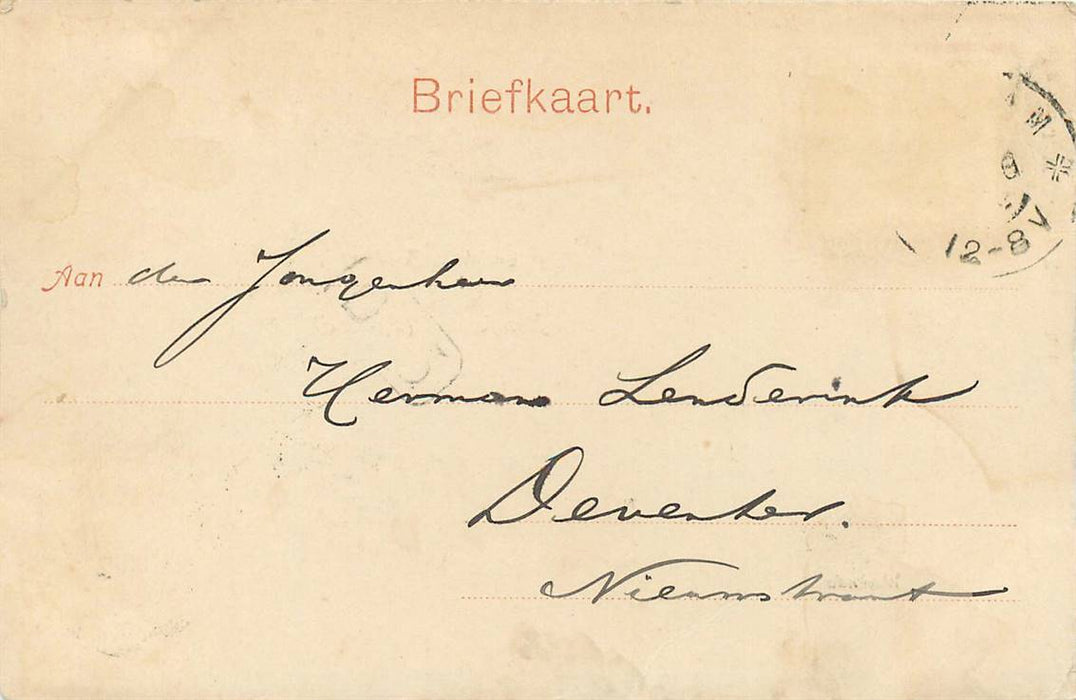 Briefkaart.
12-8V
Aan den Jongenheer
Herman Lenderink
Deventer.
Nieuwstraat